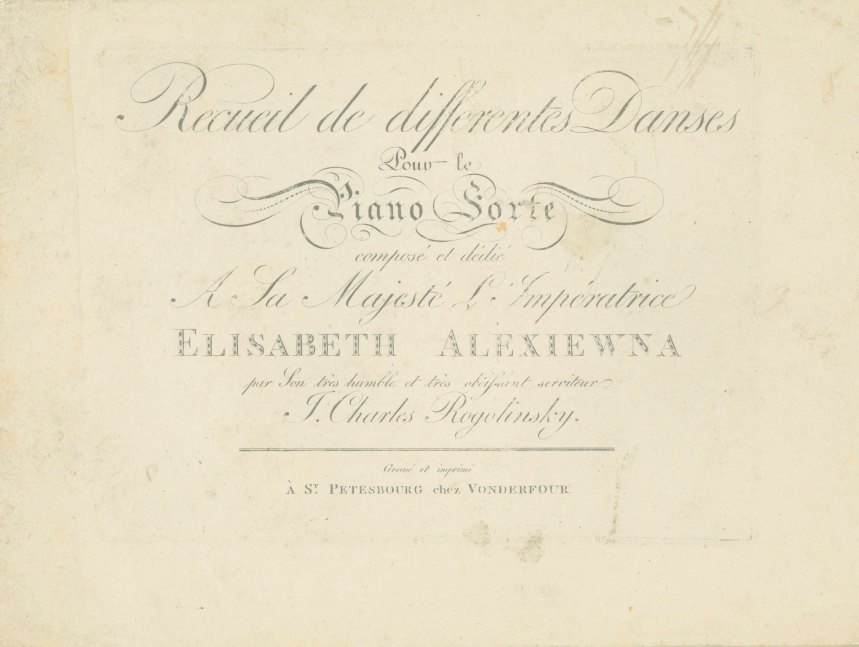 Recueil de differentes Danses
Pour le
Piano Forte
composé et dédié
A Sa Majesté L'Impératrice
ELISABETH ALEXIEWNA
par Son très humble et très obéissant serviteur
J. Charles Rogolinsky.
Gravé et imprimé
À ST. PETESBOURG chez VONDERFOUR.